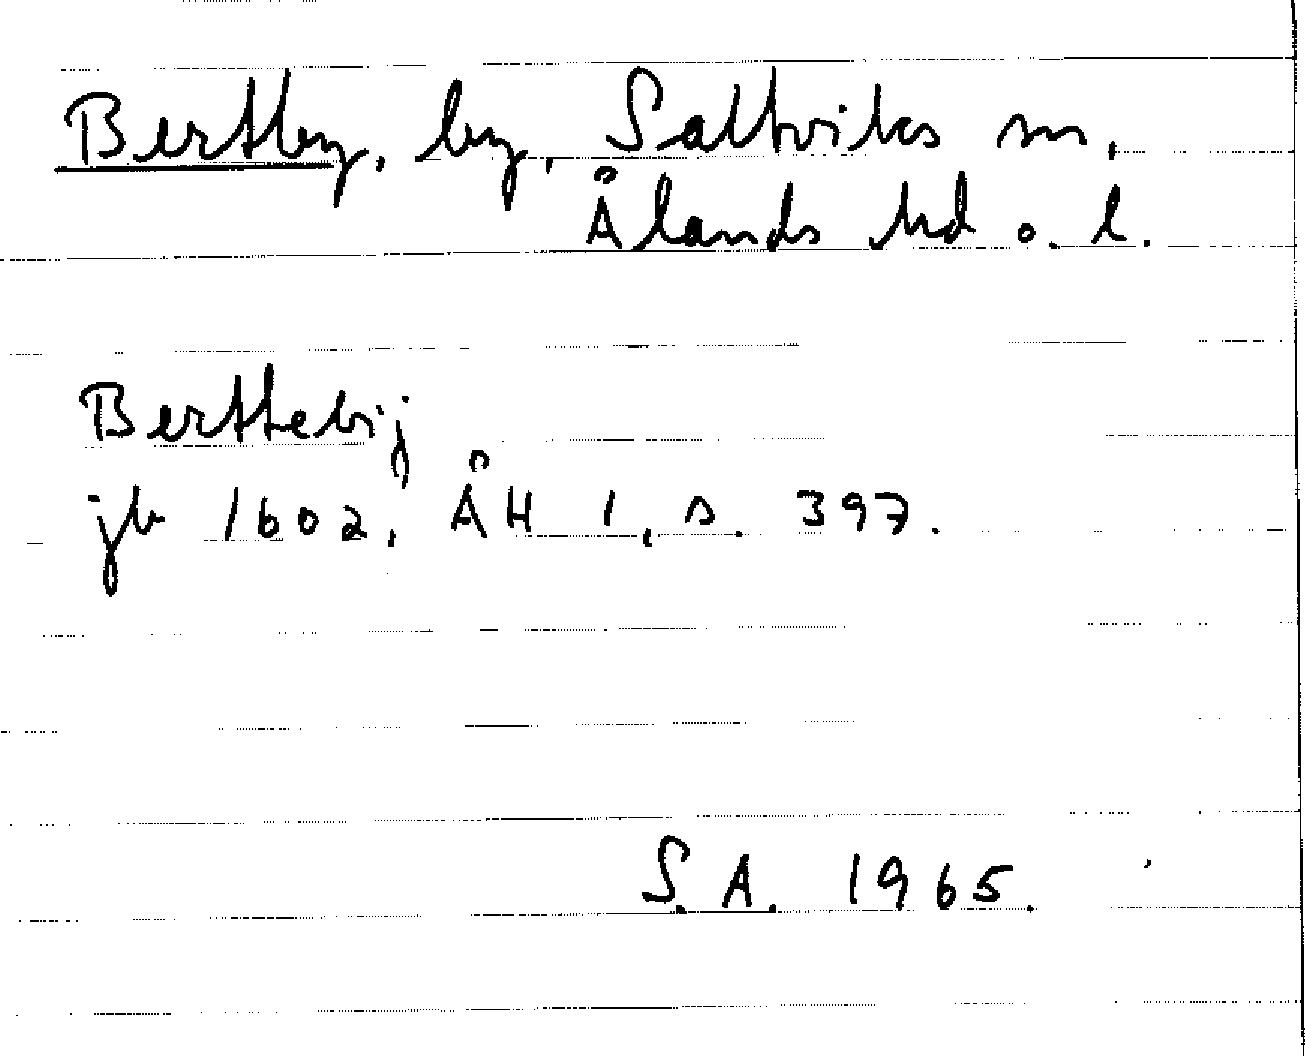 Bertby, by, Saltviks sn,
Ålands hd o. l.
Berttebij
jb 1602, ÅH 1, s. 397.
S.A. 1965.